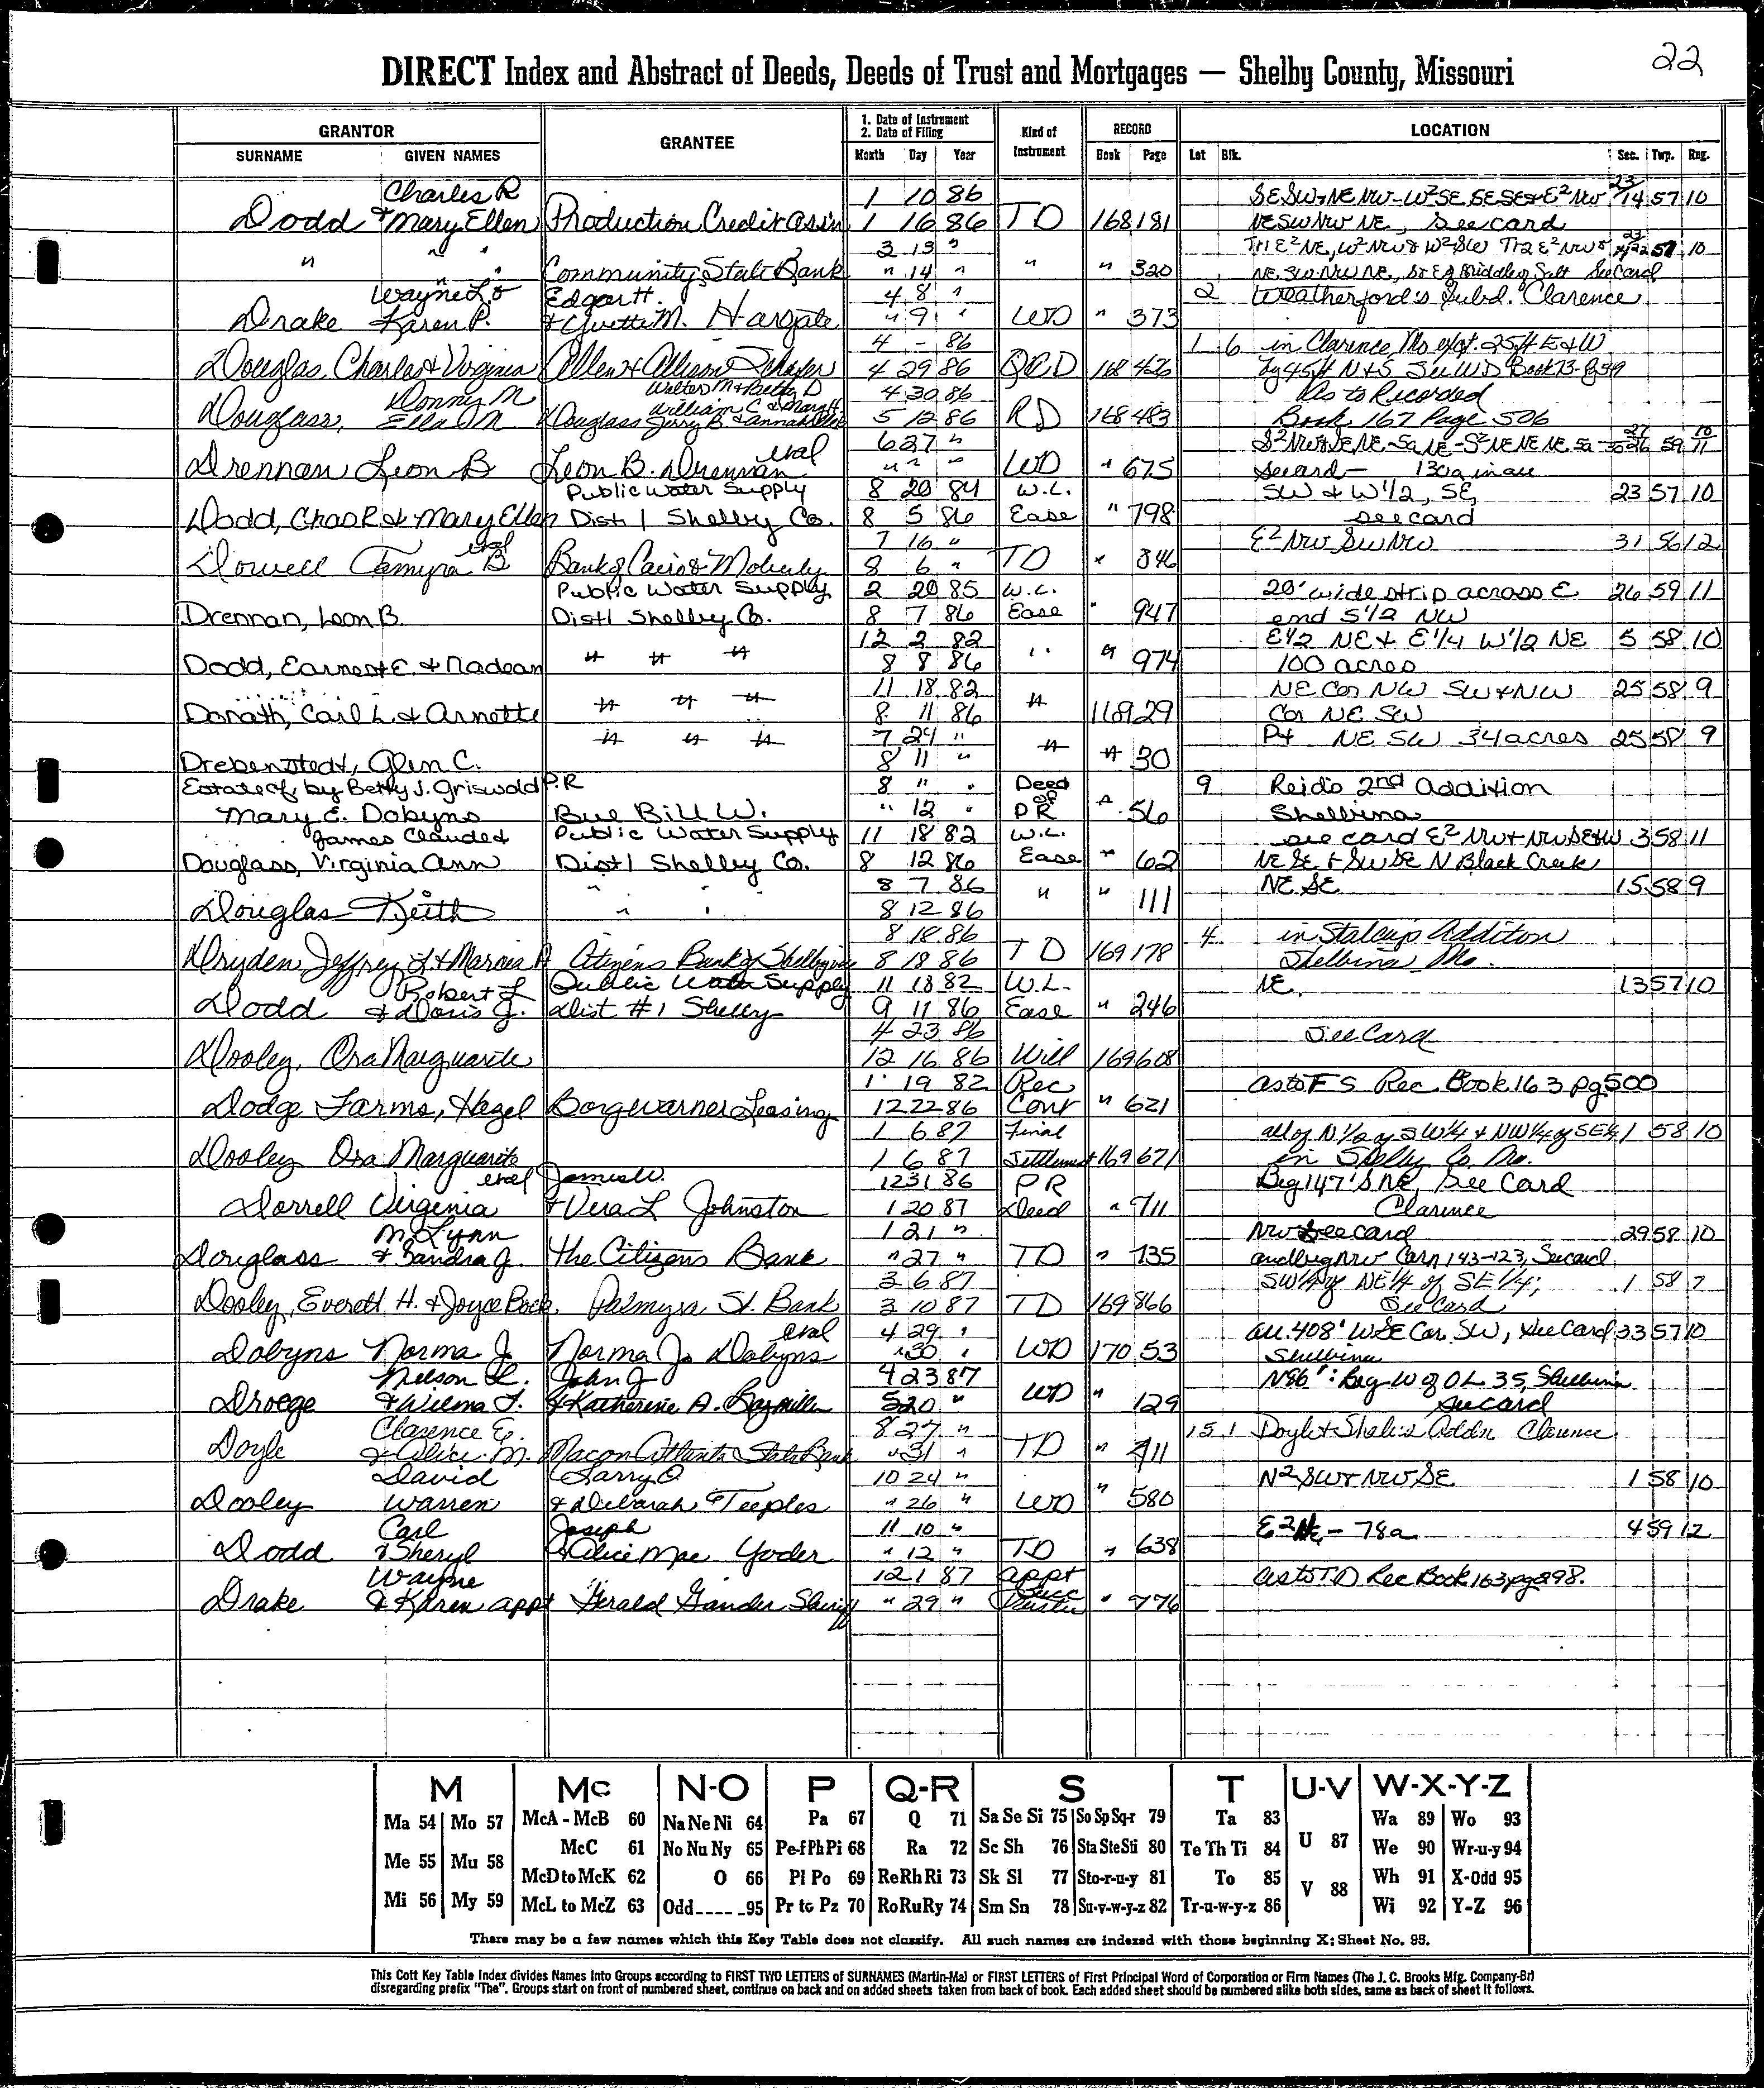 22
DIRECT Index and Abstract of Deeds, Deeds of Trust and Mortgages — Shelby County, Missouri
GRANTOR GRANTEE 1. Date of Instrument 2. Date of Filing Kind of Instrument RECORD LOCATION
SURNAME GIVEN NAMES Month Day Year Book Page Lot Blk. Sec. Twp. Rng.
Charles R 1 10 86 SE SW & NE NW - W2 SE, SE SE & E2 NW 23
Dodd & Mary Ellen Production Credit Ass'n 1 16 86 TD 168 181 NE SW NW NE, See card 14 57 10
3 13 "
" " " Community State Bank " 14 " " " 320 See Card
Wayne L & Edgar H. 4 8 " 2 Weatherford's Subd. Clarence
Drake Karen P. & Yvette M. Hargate " 9 " WD " 373
4 - 86 1 6 in Clarence Mo
Douglas, Charles & Virginia Allen & Allison 4 29 86 QCD 168 426
Donny M Walter M & Betty D 4 30 86 As to Recorded
Douglass, Ella M. Douglass 5 12 86 RD 168 483 Book 167 Page 506
etal 6 27 "
Drennan Leon B Leon B. Drennan " " " WD " 675 See card - 130a in all
Public Water Supply 8 20 84 W.L. SW & W 1/2, SE, 23 57 10
Dodd, Chas R & Mary Ellen Dist 1 Shelby Co. 8 5 86 Ease " 798 see card
etal 7 16 " E2 NW SW NW 31 56 12
Dowell Temyra B Bank of Cairo & Moberly 8 6 " TD " 846
Public Water Supply 2 20 85 W.L. 20' wide strip across E 26 59 11
Drennan, Leon B. Dist 1 Shelby Co. 8 7 86 Ease " 947 end S 1/2 NW
12 2 82 E 1/2 NE & E 1/4 W 1/2 NE 5 58 10
Dodd, Earnest E. & Nadean " " " 8 8 86 " " 974 100 acres
11 18 82 NE Cor NW SW & NW 25 58 9
Donath, Carl L. & Arnette " " " 8 11 86 " 169 29 Cor NE SW
" " " 7 24 " Pt NE SW 34 acres 25 58 9
Drebenstedt, Glen C. 8 11 " " " 30
Estate of, by Betty J. Griswold P.R 8 " " Deed of 9 Reid's 2nd Addition
Mary E. Dobyns Bue Bill W. " 12 " PR " 56 Shelbina
James Claude & Public Water Supply 11 18 82 W.L. see card E2 NW & NW SE & W 3 58 11
Douglass, Virginia Ann Dist 1 Shelby Co. 8 12 86 Ease " 62 NE SE & SW SE N Black Creek
8 7 86 NE SE 15 58 9
Douglas Keith " " 8 12 86 " " 111
8 18 86 4 in Stalcup Addition
Dryden, Jeffrey L & Marcia A Citizens Bank of Shelbyville 8 18 86 TD 169 178 Shelbina, Mo.
Robert L Public Water Supply 11 18 82 W.L. NE. 13 57 10
Dodd & Doris J. Dist #1 Shelby 9 11 86 Ease " 246
4 23 86 See Card
Dooley, Ora Marguerite 12 16 86 Will 169 608
1 19 82 Rec as to F S Rec. Book 163 pg 500
Dodge Farms, Hazel Borgwarner Leasing 12 22 86 Cont " 621
1 6 87 Final all of N 1/2 of SW 1/4 & NW 1/4 of SE 1/4 1 58 10
Dooley Ora Marguerite 1 6 87 Settlement 169 671 in Shelby Co. Mo.
etal James W. 12 31 86 PR Beg 147' S NE, See Card
Dorrell Virginia & Vera L Johnston 1 20 87 Deed " 711 Clarence
M. Lynn 1 21 " NW See card 29 58 10
Douglass & Sandra J. The Citizens Bank " 27 " TD " 735 and beg NW Corn 143-123, See card
3 6 87 SW 1/4 of NE 1/4 of SE 1/4; 1 58 7
Dooley, Everett H. & Joyce Palmyra St. Bank 3 10 87 TD 169 866 See Card
etal 4 29 " all 408' W SE Cor SW, See Card 33 57 10
Dobyns Norma J Norma J. Dobyns " 30 " WD 170 53 Shelbina
Nelson L. John J 4 23 87 N86': Beg W of OL 35, Shelbina
Droege & Wilma F. & Katherine A. 5 20 " WD " 129 See card
Clarence E. 8 27 " 15 1 Doyle & Addn Clarence
Doyle & Alice M. Macon Atlanta State Bank " 31 " TD " 411
David Larry O 10 24 " N2 SW & NW SE 1 58 10
Dooley Warren & Deborah Teeples " 26 " WD " 580
Carl Joseph 11 10 " E2 NE - 78a 4 59 12
Dodd & Sheryl & Alice Mae Yoder " 12 " TD " 638
Wayne 12 1 87 Appt as to TD Rec Book 163 pg 298.
Drake & Karen appt Gerald Gander Sheriff " 29 " Succ Trustee " 776
M Mc N-O P Q-R S T U-V W-X-Y-Z
Ma 54 Mo 57 McA - McB 60 Na Ne Ni 64 Pa 67 Q 71 Sa Se Si 75 So Sp Sq-r 79 Ta 83 U 87 Wa 89 Wo 93
Me 55 Mu 58 McC 61 No Nu Ny 65 Pe-f Ph Pi 68 Ra 72 Sc Sh 76 Sta Ste Sti 80 Te Th Ti 84 We 90 Wr-u-y 94
McD to McK 62 O 66 Pl Po 69 Re Rh Ri 73 Sk Sl 77 Sto-r-u-y 81 To 85 V 88 Wh 91 X-Odd 95
Mi 56 My 59 McL to McZ 63 Odd 95 Pr to Pz 70 Ro Ru Ry 74 Sm Sn 78 Su-v-w-y-z 82 Tr-u-w-y-z 86 Wi 92 Y-Z 96
There may be a few names which this Key Table does not classify. All such names are indexed with those beginning X; Sheet No. 95.
This Cott Key Table Index divides Names Into Groups according to FIRST TWO LETTERS of SURNAMES (Martin-Ma) or FIRST LETTERS of First Principal Word of Corporation or Firm Names (The J. C. Brooks Mfg. Company-Br)
disregarding prefix "The". Groups start on front of numbered sheet, continue on back and on added sheets taken from back of book. Each added sheet should be numbered alike both sides, same as back of sheet it follows.